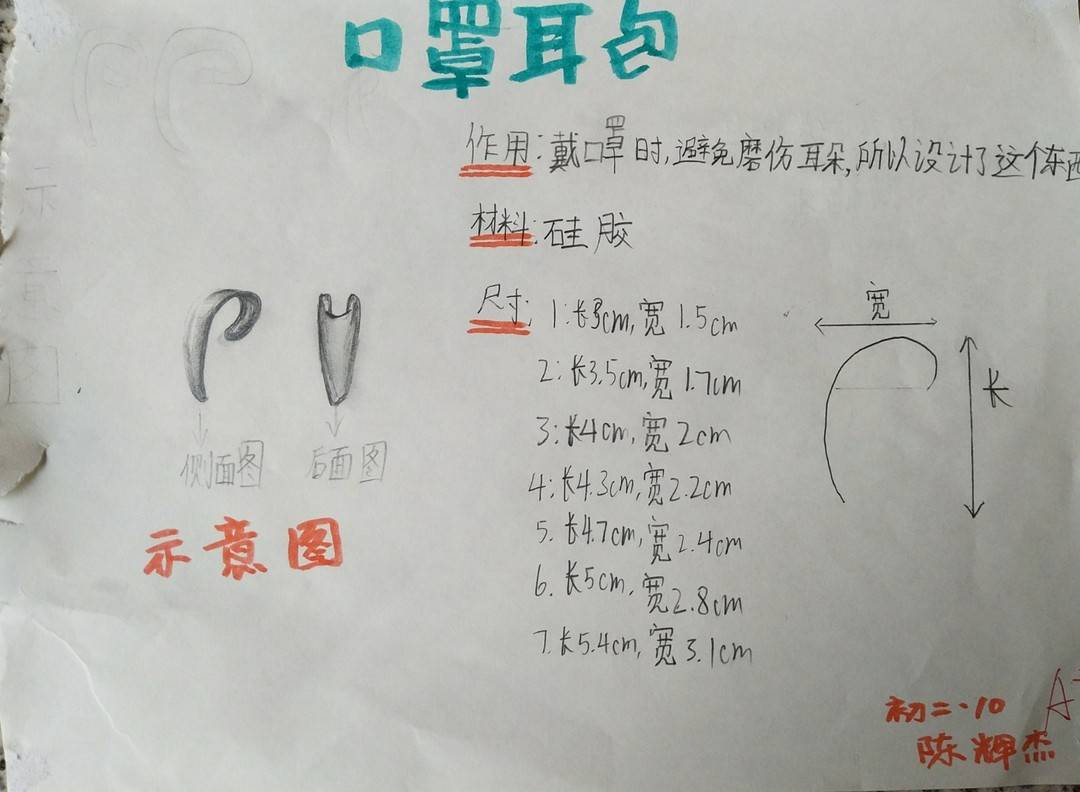 口罩耳包
作用:戴口罩时,避免磨伤耳朵,所以设计了这个东西
材料:硅胶
尺寸:1:长3cm,宽1.5cm
2:长3.5cm,宽1.7cm
3:长4cm,宽2cm
4:长4.3cm,宽2.2cm
5.长4.7cm,宽2.4cm
6.长5cm,宽2.8cm
7.长5.4cm,宽3.1cm
宽
长
侧面图
后面图
示意图
示
意
图
初二·10
陈辉杰